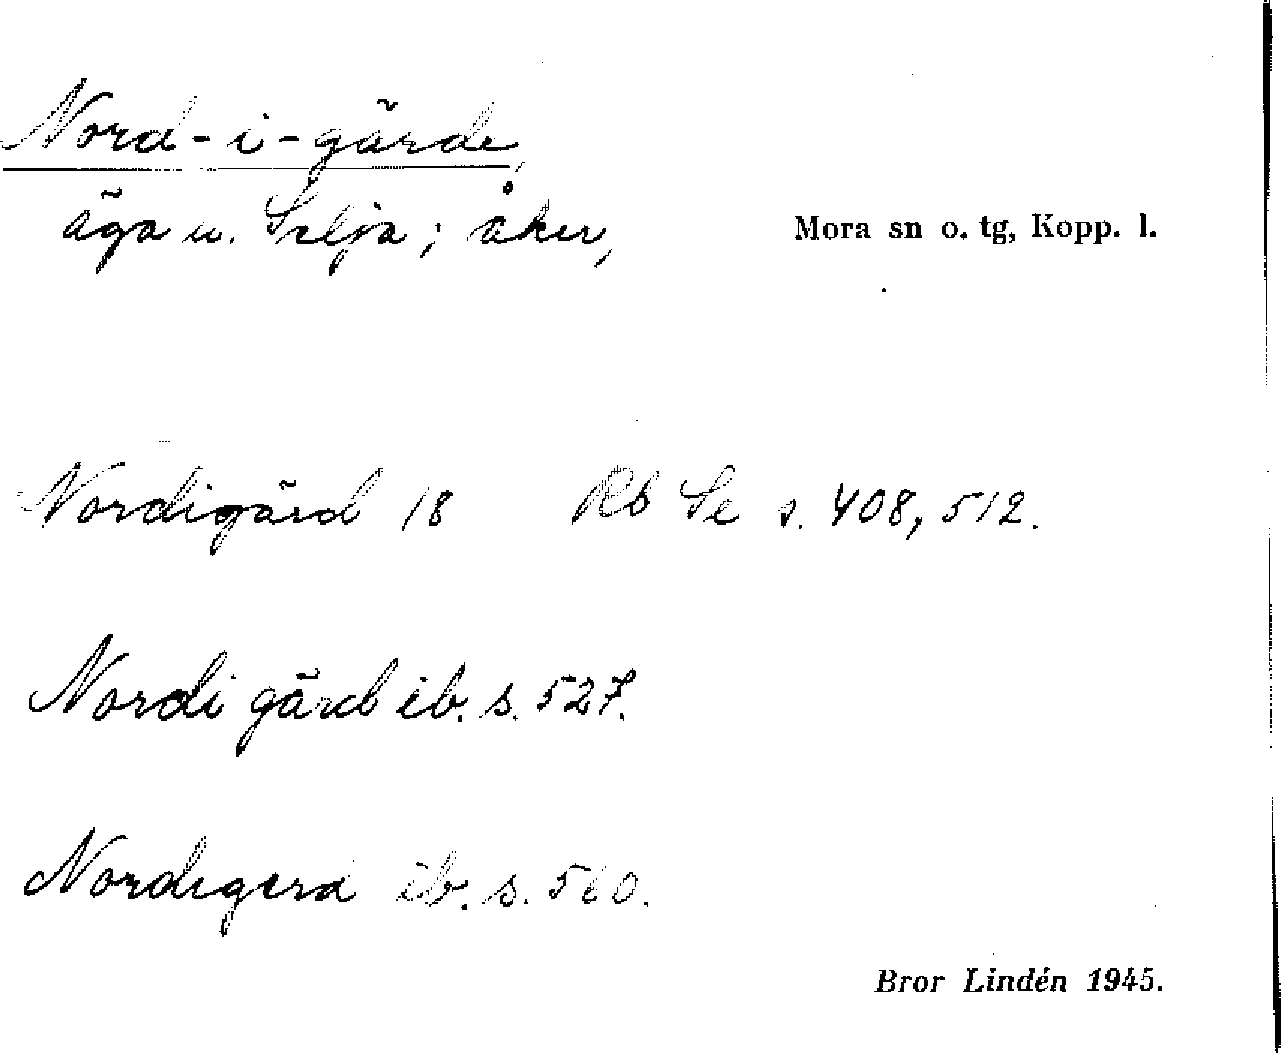 Nord-i-gärde,
äga u. Selja; åker,
Mora sn o. tg, Kopp. l.
Nordigärd 18 Rb Se s. 408, 512.
Nordi gärd ib. s. 527.
Nordigerd ib. s. 560.
Bror Lindén 1945.